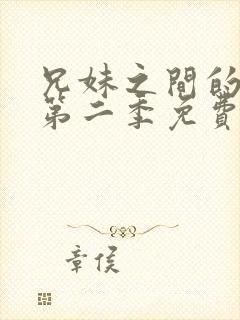 兄妹之間的
第二季免費
章侯